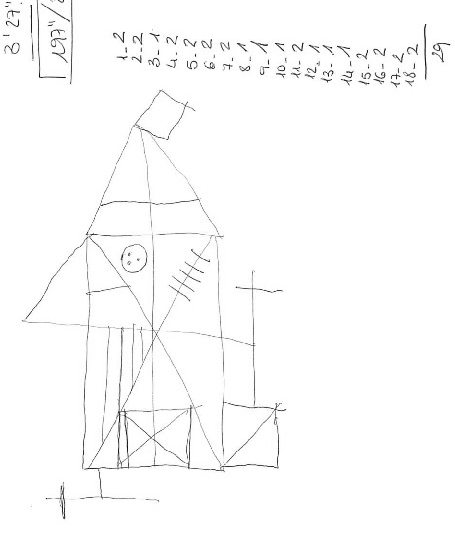 3' 27"
197"/
1- 2
2- 2
3- 1
4- 2
5- 2
6- 2
7- 2
8- 1
9- 1
10- 1
11- 2
12- 1
13- 1
14- 1
15- 2
16- 2
17- 2
18- 2
29